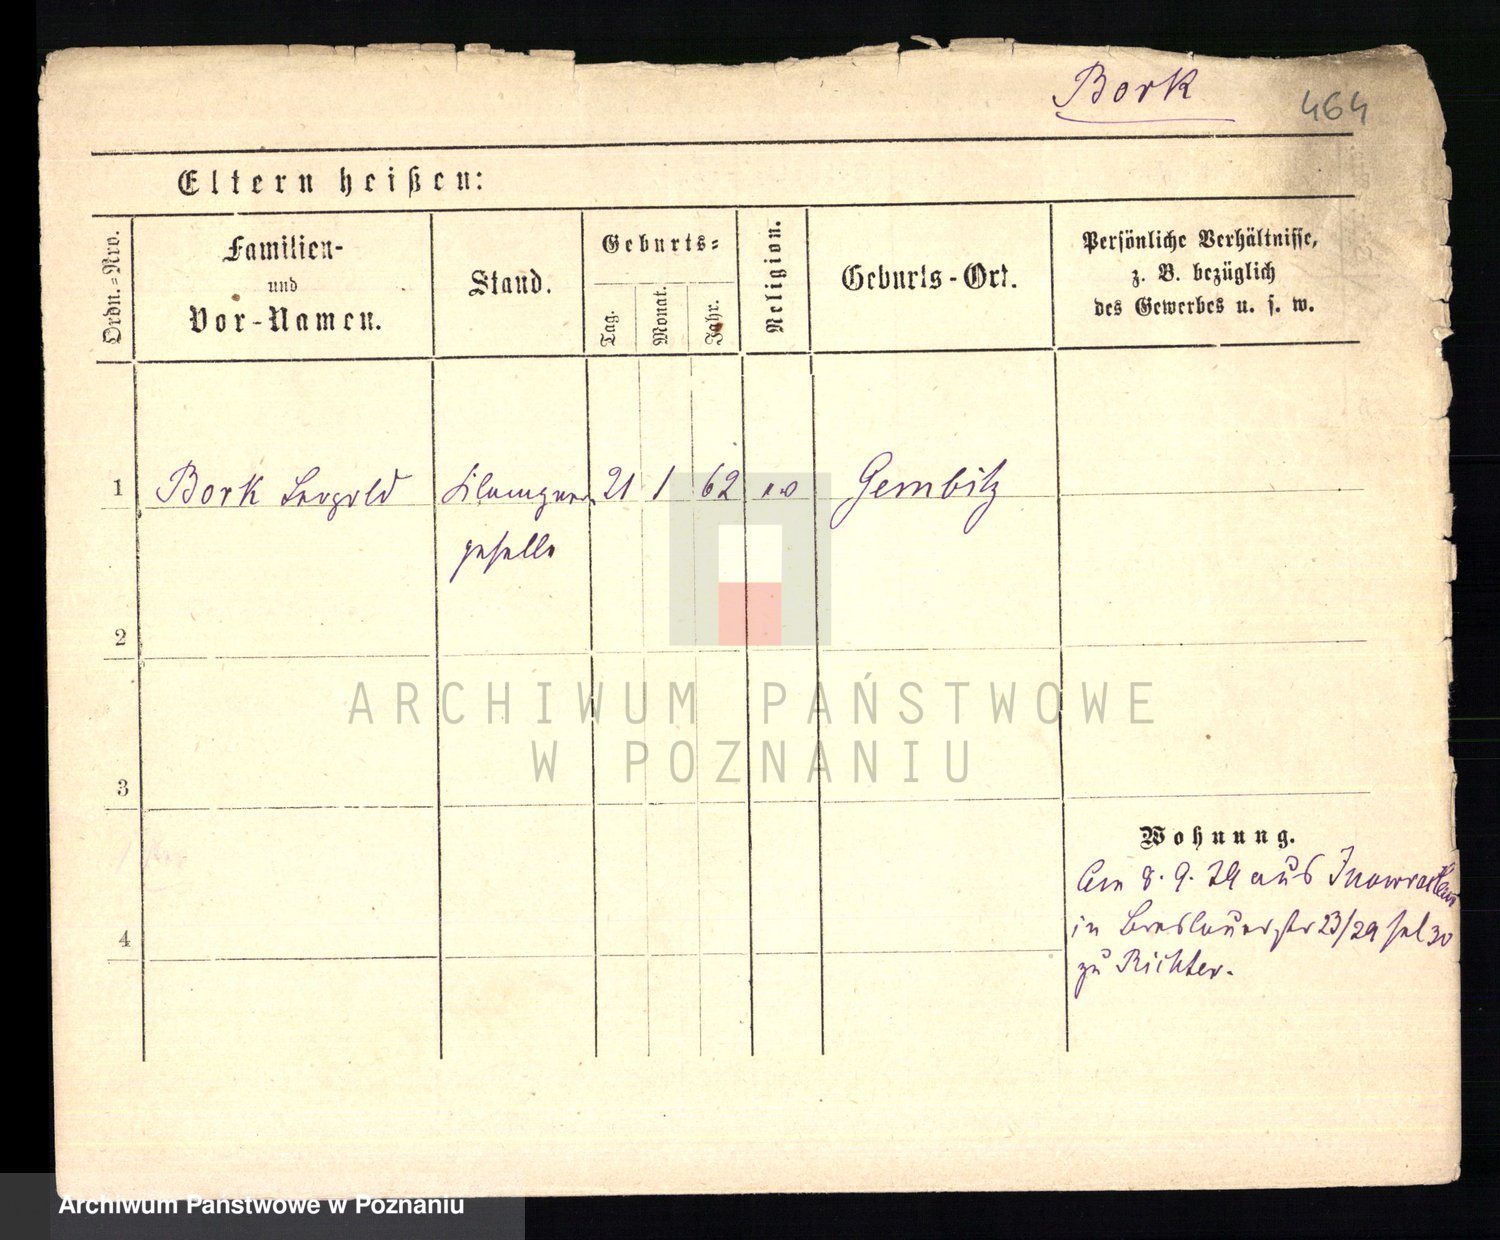 Bork
464
Eltern heißen:
Ordn.-Nro.
Familien-
und
Vor-Namen.
Stand.
Geburts-
Tag.
Monat.
Jahr.
Religion.
Geburts-Ort.
Persönliche Verhältnisse,
z. B. bezüglich
des Gewerbes u. s. w.
1 Bork Leopold Klempner 21 1 62 ev Gembitz
geselle
2
3
4
Wohnung.
Am 8. 9. 79 aus Inowraclaw
in Breslauerstr 23/29 bei
zu Richter.
ARCHIWUM PAŃSTWOWE
W POZNANIU
Archiwum Państwowe w Poznaniu